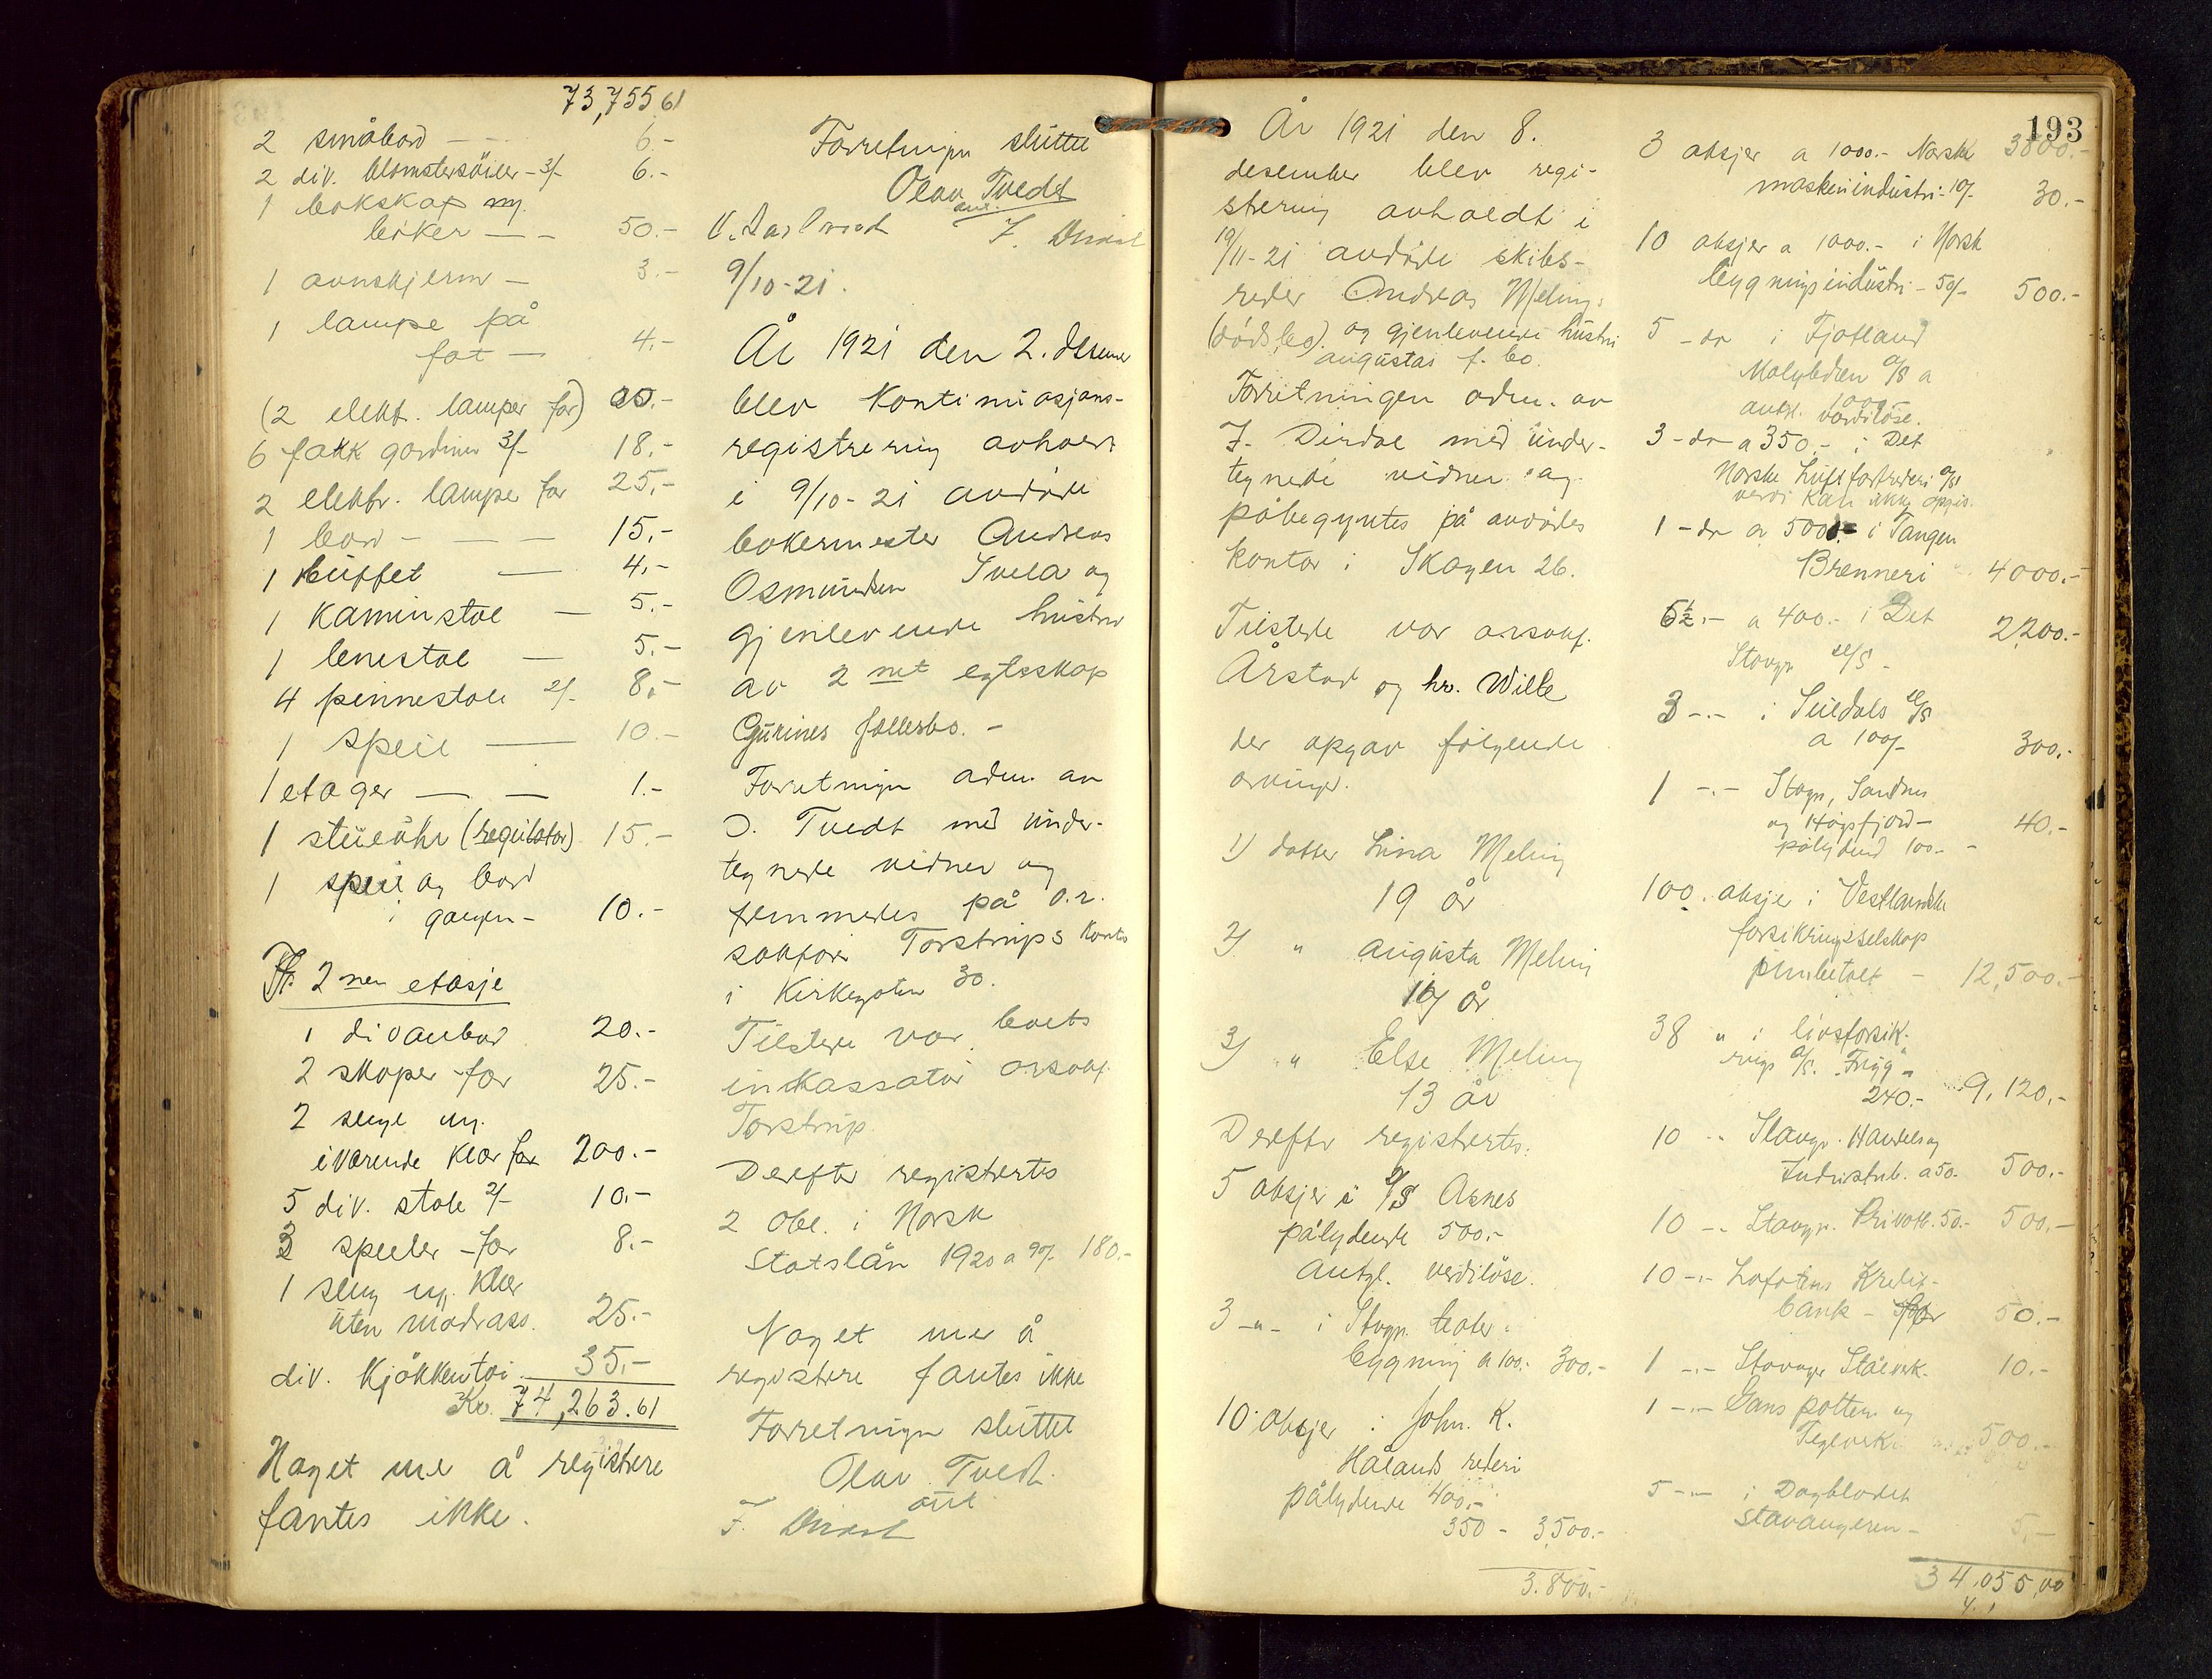 73,755 61
2 småbord — - 6.-
2 div. blomstersöiler - 3/- 6.-
1 bokskap m.
böker — - 50.-
1 ovnskjerm - 3.-
1 lampe på
fat — 4.-
(2 elekt. lamper for) 20.-
6 fakk gardiner 3/- 18.-
2 elektr. lamper for 25.-
1 bord - — — 15.-
1 buffet — 4.-
1 kaminstol — 5.-
1 lenestol — 5.-
4 pinnestole 2/- 8.-
1 speil — 10.-
1 etager — — 1.-
1 stueuhr (regulator) 15.-
1 speil og bord
i gangen - 10.-
2nen etasje
1 divanbord 20.-
2 skaper for 25.-
2 senge m.
iværende klær for 200.-
5 div. stole 2/- 10.-
3 speiler - for 8.-
1 seng m. klær
uten madrass. 25.-
div. kjökkentöi 35.-
Kr. 74,263.61
Noget mer å registrere
fantes ikke.
Forretningen sluttet
Olav Tvedt
aut.
9/10-21.
År 1921 den 2. desember
blev kontinuasjons-
registrering avholdt
i 9/10-21 avdöde
bakermester Andreas
Osmundsen Tvela og
gjenlevende hustru
av 2net egteskap
Gurines fællesbo. -
Forretningen adm. av
O. Tvedt med under-
tegnede vidner og
fremmedes på o.r.
sakförer Torstrups kontor
i Kirkegaten 30.
Tilstede var boets
inkassator o.r.sakf.
Torstrup.
Derefter registrertes
2 obl. i Norsk
Statslån 1920 a 90/- 180.-
Noget mer å
registrere fantes ikke
Forretningen sluttet
Olav Tvedt.
aut
193
År 1921 den 8.
desember blev regi-
strering avholdt i
19/11-21 avdöde skibs-
reder Andreas Melings
(dödsbo). og gjenlevende hustru
Augustas f. bo.
Forretningen adm. av
F. Dirdal med under-
tegnede vidner og
påbegyntes på avdödes
kontor i Skagen 26.
Tilstede var o.r.sakf.
Årstad og hr. Wille
der opgav fölgende
arvinger.
1) datter Lina Meling
19 år
2) " Augusta Meling
16 år
3) " Else Meling
13 år
Derefter registrertes.
5 aksjer i A/S Agnes
pålydende 500.-
antgl. verdilöse.
3 -"- i Stvgr. teater-
bygning a 100.- 300.-
10 aksjer i John. K.
Hålands rederi
pålydende 400.-
350 - 3,500.-
3.800.-
3 aksjer a 1000.- Norsk 3800.-
maskinindustri - 10/- 30.-
10 aksjer a 1000.- i Norsk
bygningsindustri - 50/- 500.-
5 - do i Fjotland
Molybden A/S a
1000.-
antgl. værdilöse.
3 - do a 350.- i Det
Norske Luftfartrederi A/S
verdi kan ikke opgis.
1 - do a 5000.- i Tangen
Brenneri 4000.-
5½.- a 400.- i Det
Stavgr. S/S - 2,200.-
3 -.- i Suldals S/S
a 100/- 300.-
1 -.- Stvgr, Sandnes
og Högsfjord -
pålydende 100.- 40.-
100. aksje i Vestlandske
forsikringsselskap
12,500.-
38 " i livsforsik-
rings A/S. "Frigg"
240.- 9,120.-
10 -" Stavgr. Handels og
Industrib. a 50.- 500.-
10 -.- Stavgr. Privatb. 50.- 500.-
10 -.- Lofotens Kredit-
bank - for 50.-
1 -.- Stavanger Stålverk. 10.-
1 -.- Gans potteri og
Teglverk 500.-
5 -"- i Dagbladet
Stavangeren - 5.-
34,055,00